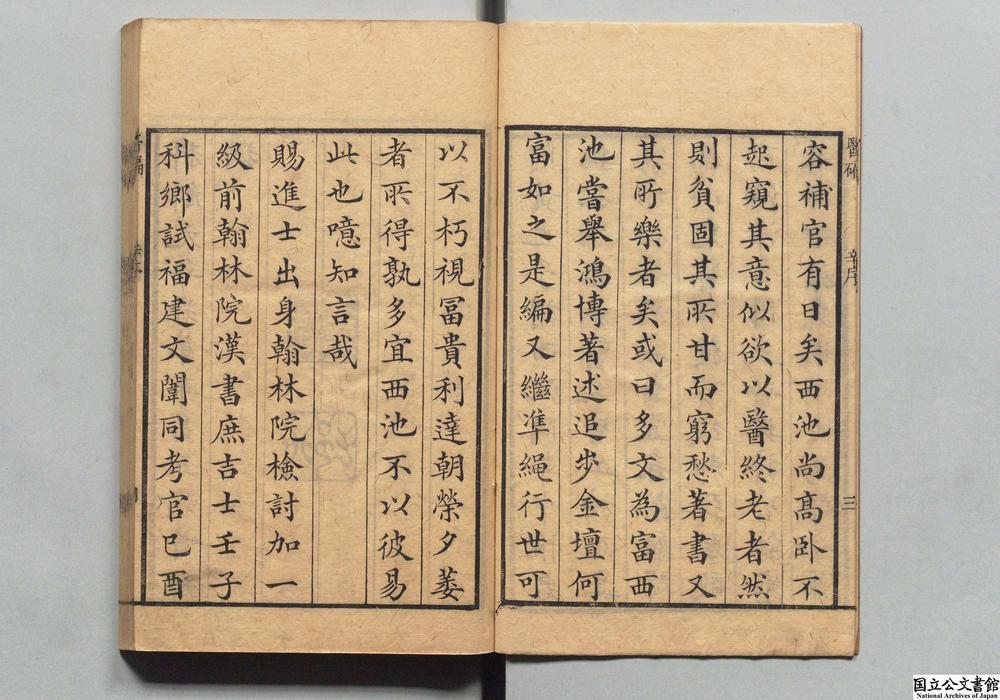 容補官有日矣西池尚髙卧不
起窺其意似欲以醫終老者然
則貧固其所甘而窮愁著書又
其所樂者矣或曰多文為富西
池嘗舉鴻博著述追步金壇何
富如之是編又繼準繩行世可
以不朽視冨貴利達朝榮夕萎
者所得孰多宜西池不以彼易
此也噫知言哉
賜進士出身翰林院檢討加一
級前翰林院漢書庶吉士壬子
科鄉試福建文闈同考官己酉
三
国立公文書館
National Archives of Japan